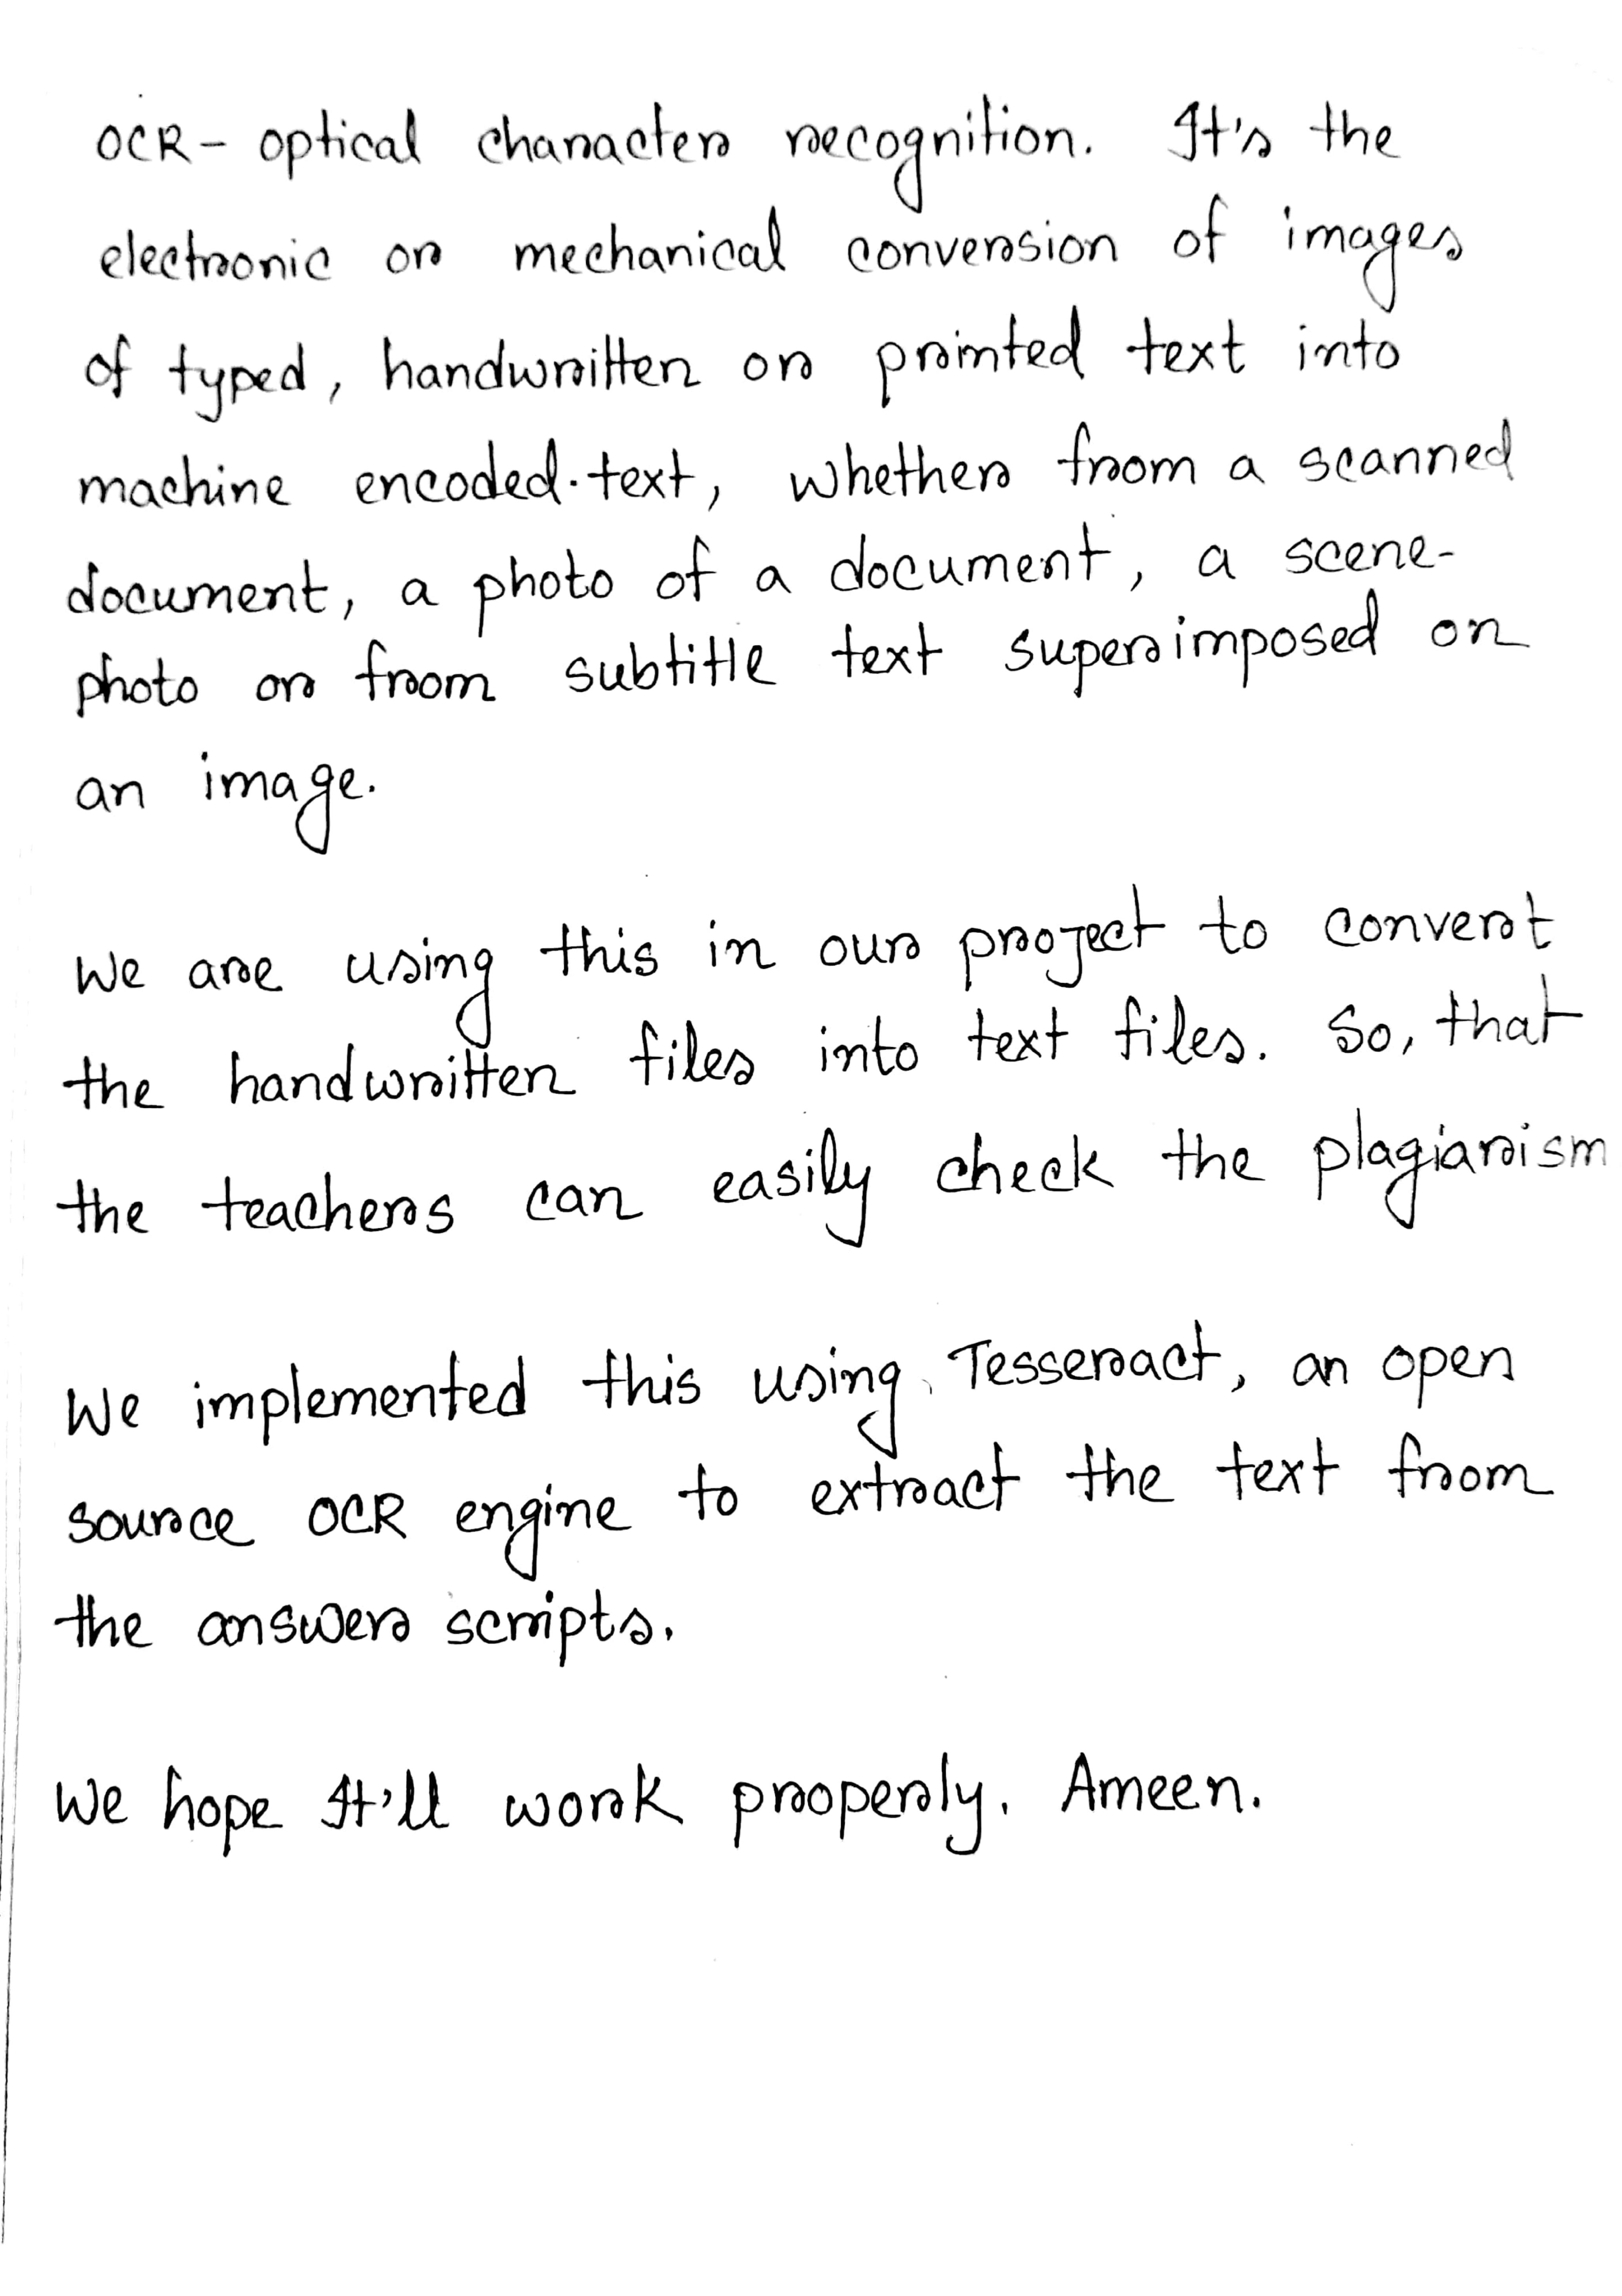 OCR - optical character recognition. It's the
electronic or mechanical conversion of images
of typed, handwritten or printed text into
machine encoded.text, whether from a scanned
document, a photo of a document, a scene-
photo or from subtitle text superimposed on
an image.
We are using this in our project to convert
the handwritten files into text files. So, that
the teachers can easily check the plagiarism
We implemented this using Tesseract, an open
source OCR engine to extract the text from
the answer scripts.
We hope It'll work properly. Ameen.